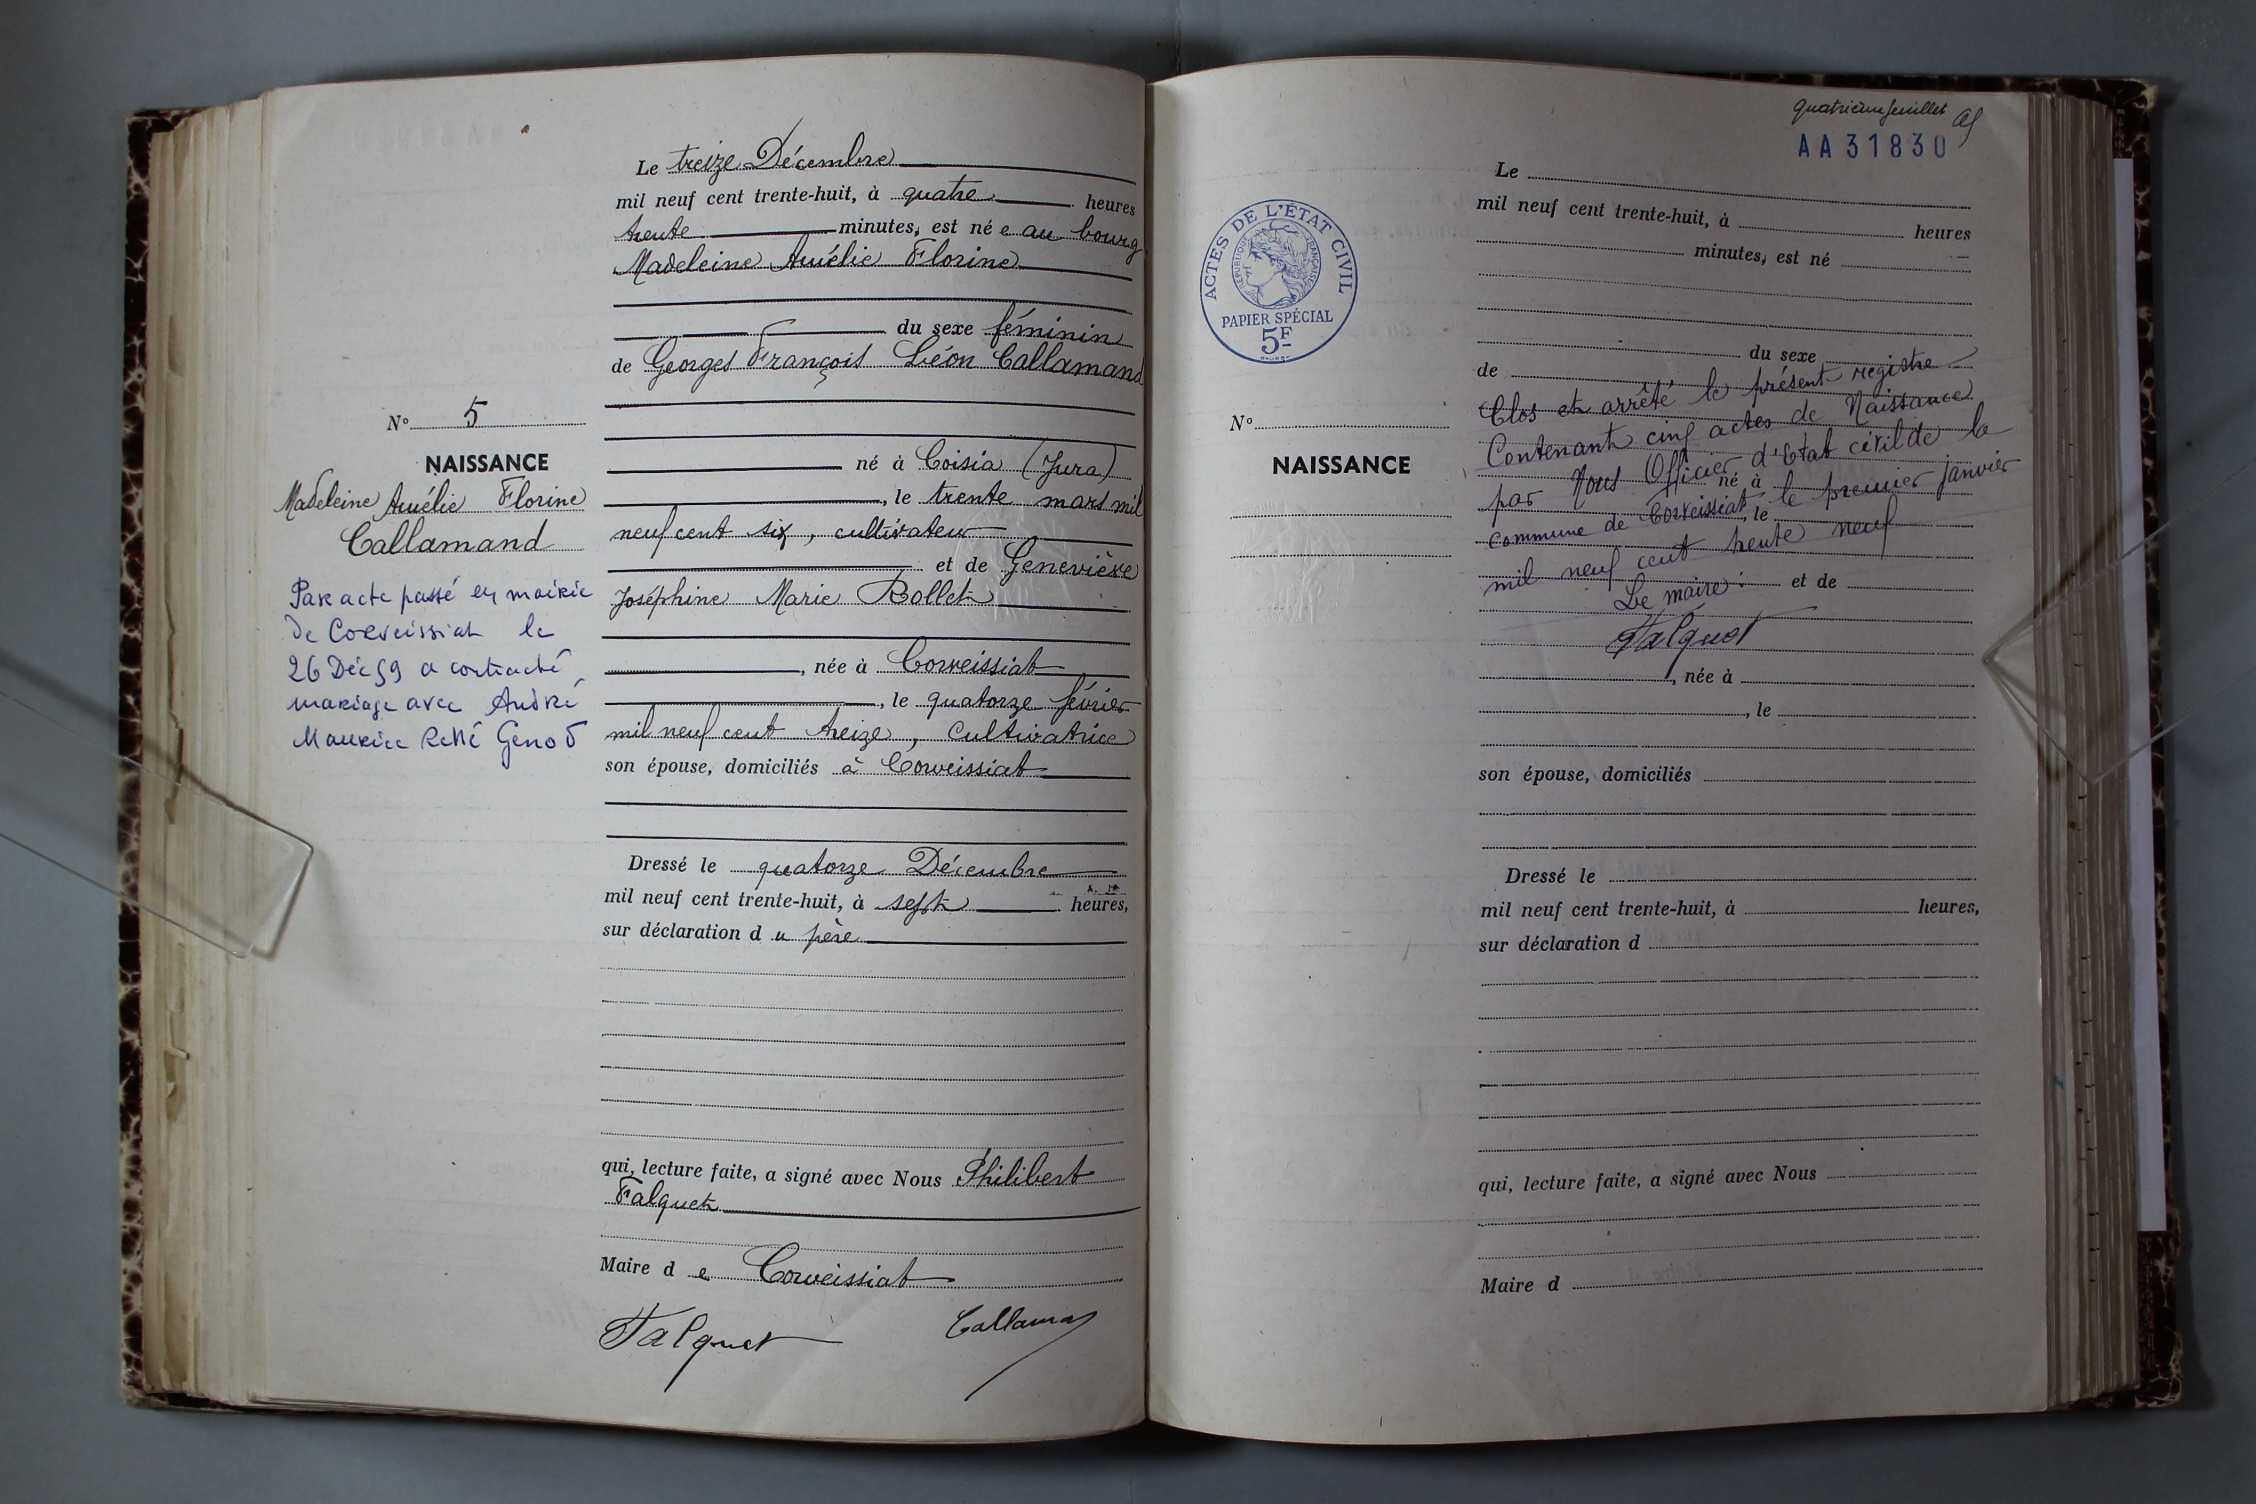 Le treize Décembre
mil neuf cent trente-huit, à quatre heures
trente minutes, est né e au bourg
Madeleine Amélie Florine
du sexe féminin
de Georges François Léon Callamand
N° 5
NAISSANCE
Madeleine Amélie Florine
Callamand
Par acte passé en mairie
de Corveissiat le
26 Déc 59 a contracté
mariage avec André
Maurice René Genod
né à Coisia (Jura)
, le trente mars mil
neuf cent six, cultivateur
et de Geneviève
Joséphine Marie Bollet
, née à Corveissiat
, le quatorze février
mil neuf cent treize, cultivatrice
son épouse, domiciliés à Corveissiat
Dressé le quatorze Décembre
mil neuf cent trente-huit, à sept heures,
sur déclaration d u père
qui, lecture faite, a signé avec Nous Philibert
Falquet
Maire d e Corveissiat
Falquet
quatrième feuillet
AA31830
ACTES DE L'ÉTAT CIVIL
RÉPUBLIQUE FRANÇAISE
PAPIER SPÉCIAL
5F
Le
mil neuf cent trente-huit, à heures
minutes, est né
du sexe
de
N°
NAISSANCE
Clos et arrêté le présent registre
Contenant cinq actes de Naissance
par Nous Officier d'Etat civil de la
né à
commune de Corveissiat, le premier janvier
, le
mil neuf cent trente neuf
et de
Le maire :
Falquet
, née à
, le
son épouse, domiciliés
Dressé le
mil neuf cent trente-huit, à heures,
sur déclaration d
qui, lecture faite, a signé avec Nous
Maire d